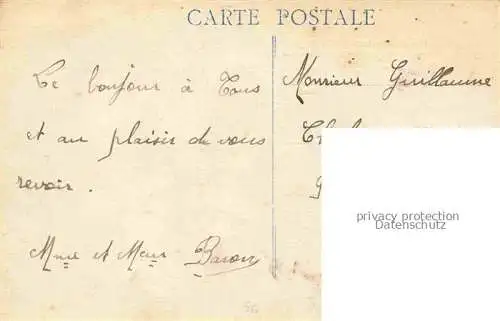 CARTE POSTALE
Le bonjour à Tous
et au plaisir de vous
revoir.
Mme et Meur Baron
Monsieur Guillaume
privacy protection
Datenschutz